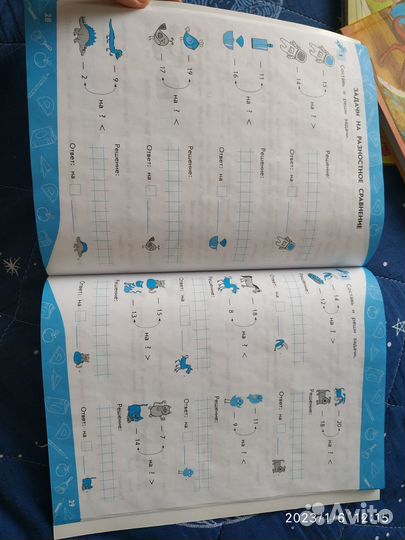 ЗАДАЧИ НА РАЗНОСТНОЕ СРАВНЕНИЕ
Составь и реши задачи.
– 15
на ? >
– 14
Решение:
Ответ: на
– 11
на ? <
– 16
Решение:
Ответ: на
– 19
на ? <
– 17
Решение:
Ответ: на
– 9
на ? <
– 2
Решение:
Ответ: на
28
Составь и реши задачи.
– 14
на ? >
– 12
Решение:
Ответ: на
– 20
на ? <
– 18
Решение:
Ответ: на
– 18
на ? <
– 8
Решение:
Ответ: на
– 11
на ? <
– 9
Решение:
Ответ: на
– 15
на ? >
– 13
Решение:
Ответ: на
– 7
на ? >
– 14
Решение:
Ответ: на
29
2023/1/6 12:15
Avito